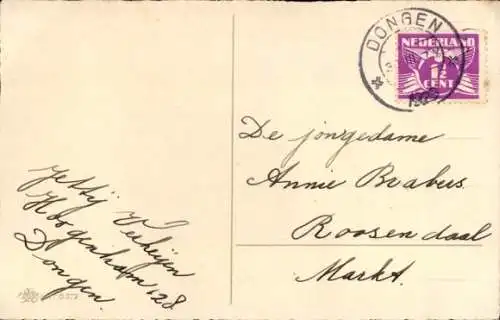 DONGEN
NEDERLAND
1½
CENT
De jongedame
Annie Brabers
Roosendaal
Markt.
Jettij Verheijen
Hoogenham 128
Dongen.